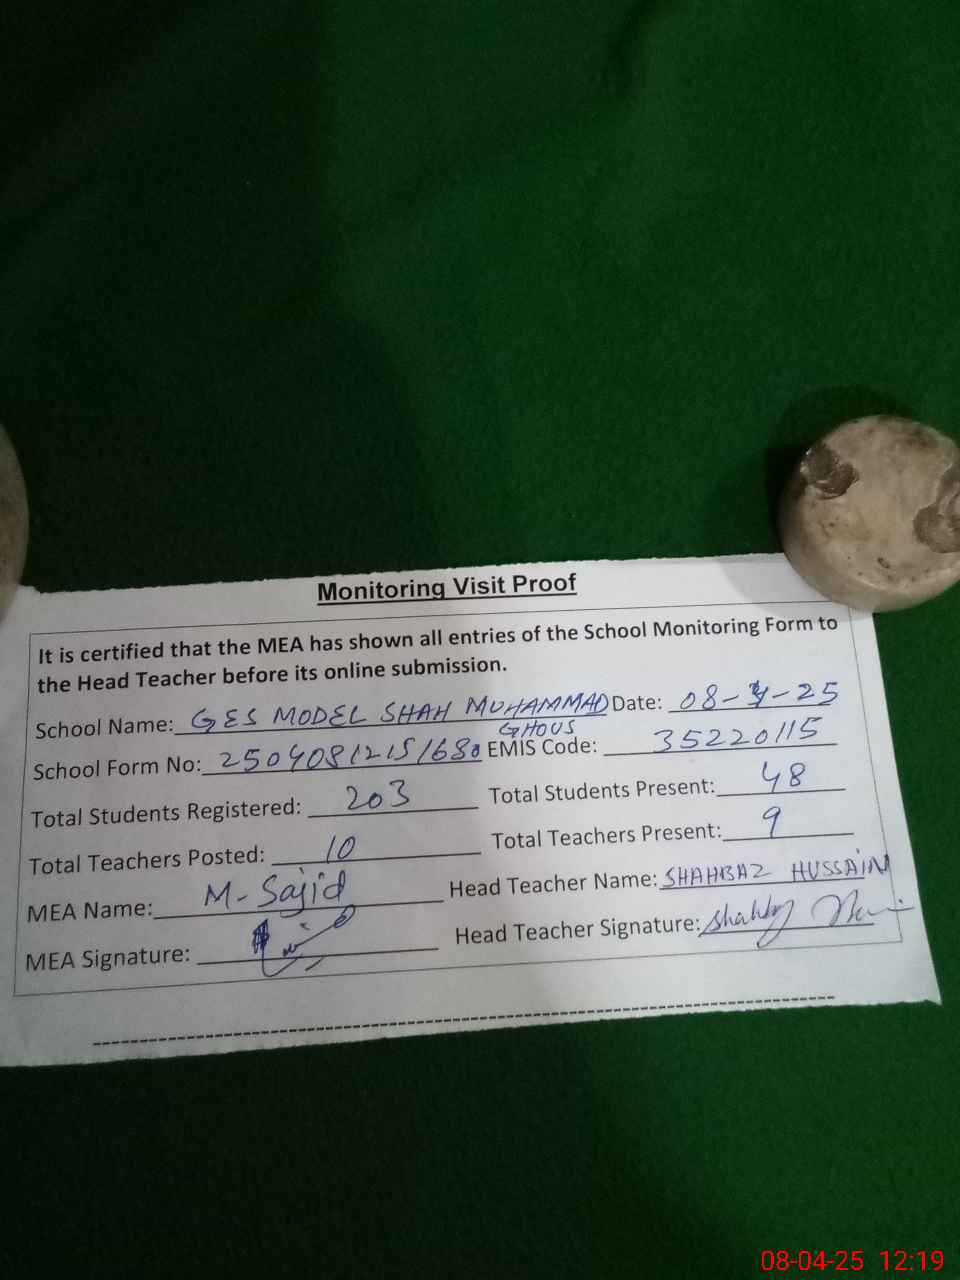 Monitoring Visit Proof
It is certified that the MEA has shown all entries of the School Monitoring Form to
the Head Teacher before its online submission.
School Name: GES MODEL SHAH MUHAMMAD GHOUS Date: 08-4-25
School Form No: 2504081215168 EMIS Code: 35220115
Total Students Registered: 203 Total Students Present: 48
Total Teachers Posted: 10 Total Teachers Present: 9
MEA Name: M-Sajid Head Teacher Name: SHAHBAZ HUSSAIN
MEA Signature: Head Teacher Signature:
08-04-25 12:19